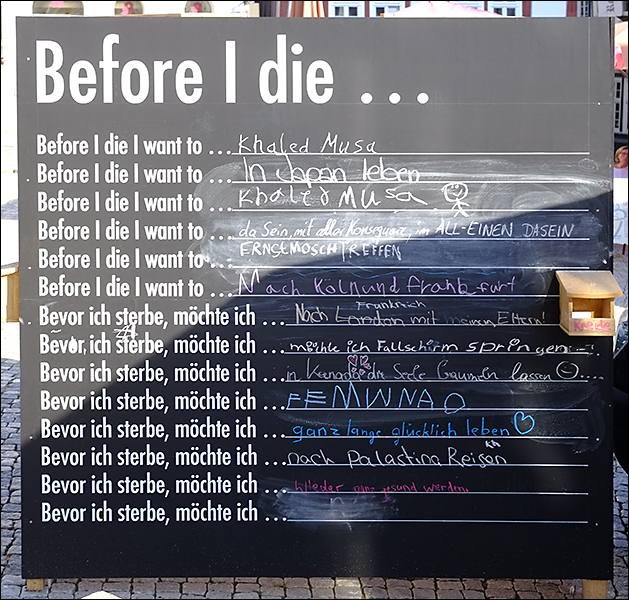 Before I die ...
Before I die I want to ... Khaled Musa
Before I die I want to ... In Japan leben
Before I die I want to ... Khaled Musa
Before I die I want to ... da Sein, mit aller Konsequenz, im ALL-EINEN DASEIN
Before I die I want to ... ERNST MOSCH TREFFEN
Before I die I want to ... Nach Köln und frankfurt
Frankreich
Bevor ich sterbe, möchte ich ... Nach London mit meinen Eltern!
Bevor ich sterbe, möchte ich ... möchte ich Fallschirm springen...
Bevor ich sterbe, möchte ich ... in Kanada die Seele baumeln lassen
Bevor ich sterbe, möchte ich ...
Bevor ich sterbe, möchte ich ... ganz lange glücklich leben
Bevor ich sterbe, möchte ich ... nach Palastina Reisen
Bevor ich sterbe, möchte ich ... wieder ganz gesund werden.
Bevor ich sterbe, möchte ich ...
Kreide